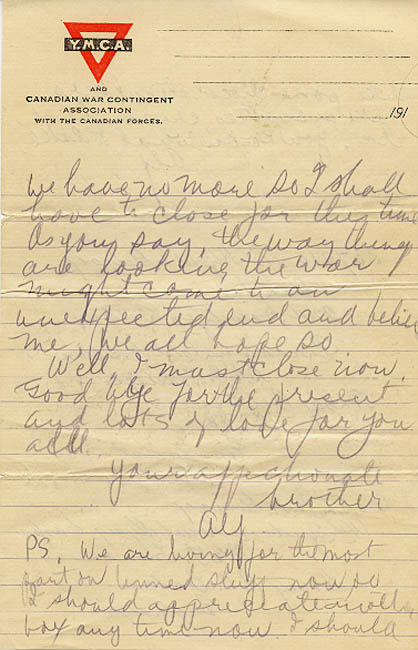 Y.M.C.A.
AND
CANADIAN WAR CONTINGENT
ASSOCIATION
WITH THE CANADIAN FORCES.
191
we have no more so I shall
have to close for this time
As you say, the way things
are looking the war
might come to an
unexpected end and believe
me, we all hope so
Well, I must close now.
Good bye for the present
and lots of love for you
all.
Your affectionate
brother
Alf
PS. We are living for the most
part on tinned stuff now so
I should appreciate another
box any time now. I should